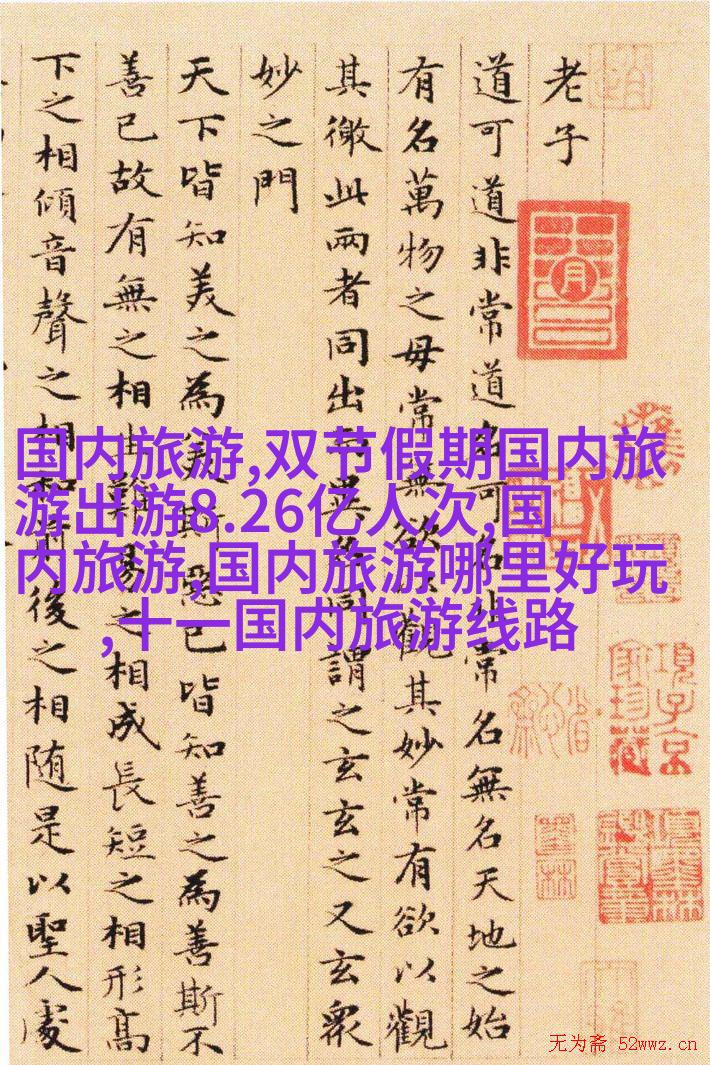 老子
道可道非常道名可名非常名無名天地之始
有名萬物之母常無欲以觀其妙常有欲以觀
其徼此兩者同出而異名同謂之玄玄之又玄衆
妙之門
天下皆知美之為美斯惡已皆知善之為善斯不
善已故有無之相由難易之相成長短之相形高
下之相傾音聲之相和前後之相随是以聖人處
国内旅游,双节假期国内旅
游出游8.26亿人次,国
内旅游,国内旅游哪里好玩
,十一国内旅游线路
項子京
家珍藏
无为斋 52wwz.cn